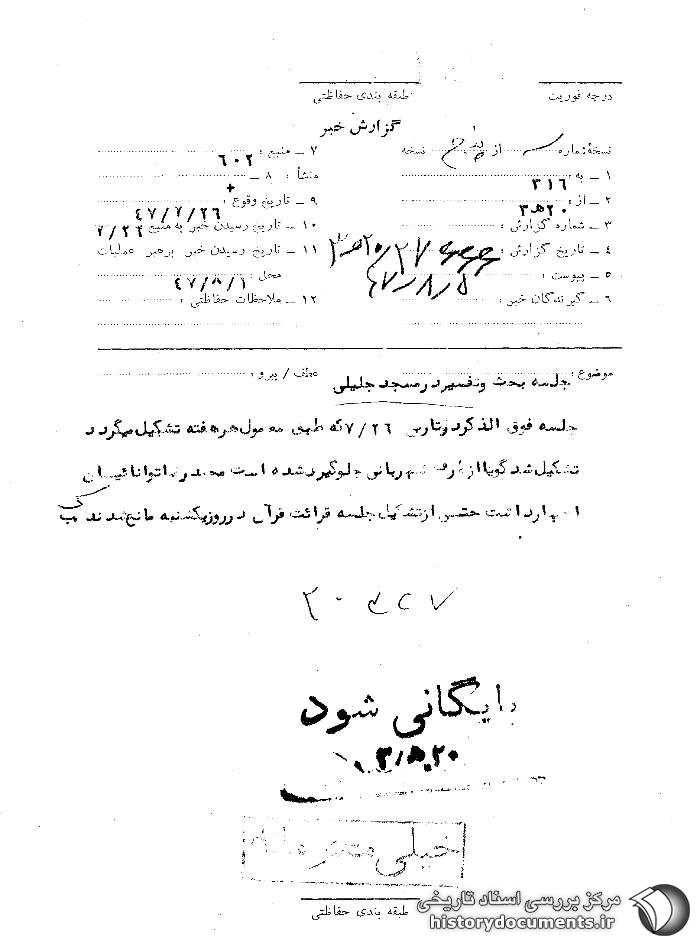 درجه فوریت
طبقه بندی حفاظتی
گزارش خبر
نسخهٔشماره از پنج نسخه
۷ ـ منبع : ۶۰۲
۱ ـ به : ۳۱۶
۸ ـ منشأ : +
۲ ـ از : ۲۰ ه‍ ۳
۹ ـ تاریخ وقوع : ۴۷/۷/۲۶
۳ ـ شماره گزارش :
۱۰ ـ تاریخ رسیدن خبر به منبع ۷/۲۶
۴ ـ تاریخ گزارش : ۴۷/۸/۵
۱۱ ـ تاریخ رسیدن خبر برهبر عملیات
۵ ـ پیوست :
محل : ۴۷/۸/۱
۶ ـ گیرندگان خبر :
۱۲ ـ ملاحظات حفاظتی :
موضوع : جلسه بحث وتفسیر در مسجد جلیلی
عطف / پیرو :
جلسه فوق الذکر در تاریخ ۷/۲۶ که طبق معمول هر هفته تشکیل میگردد
تشکیل نشد گویا از طرف شهربانی جلوگیری شده است محمد رضا توانائیان
اظهار داشت حتی از تشکیل جلسه قرائت قرآن در روز یکشنبه مانع شدند
بایگانی شود
۲۰ ه‍ ۳
خیلی محرمانه
طبقه بندی حفاظتی
مرکز بررسی اسناد تاریخی
historydocuments.ir